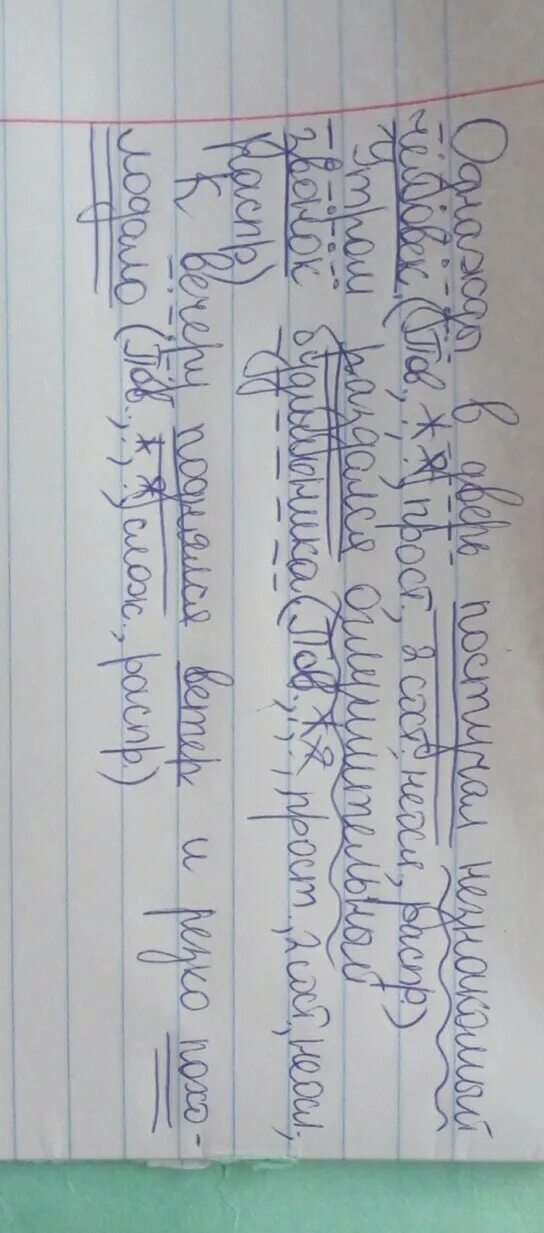 Однажды в дверь постучал незнакомый
человек. (Пов., прост., 2сост, неосл, распр.)
Утром раздался оглушительный
звонок будильника (Пов., прост., 2сост, неосл,
распр.)
К вечеру поднялся ветер и резко похо-
лодало (Пов., слож., распр.)